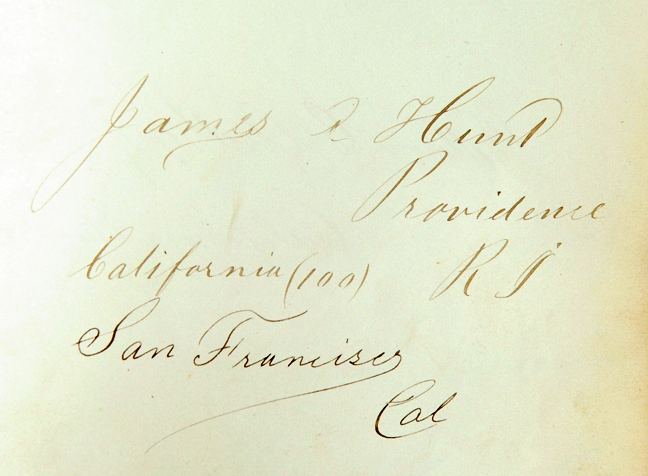 James Hunt
Providence
California (100) R I
San Francisco
Cal